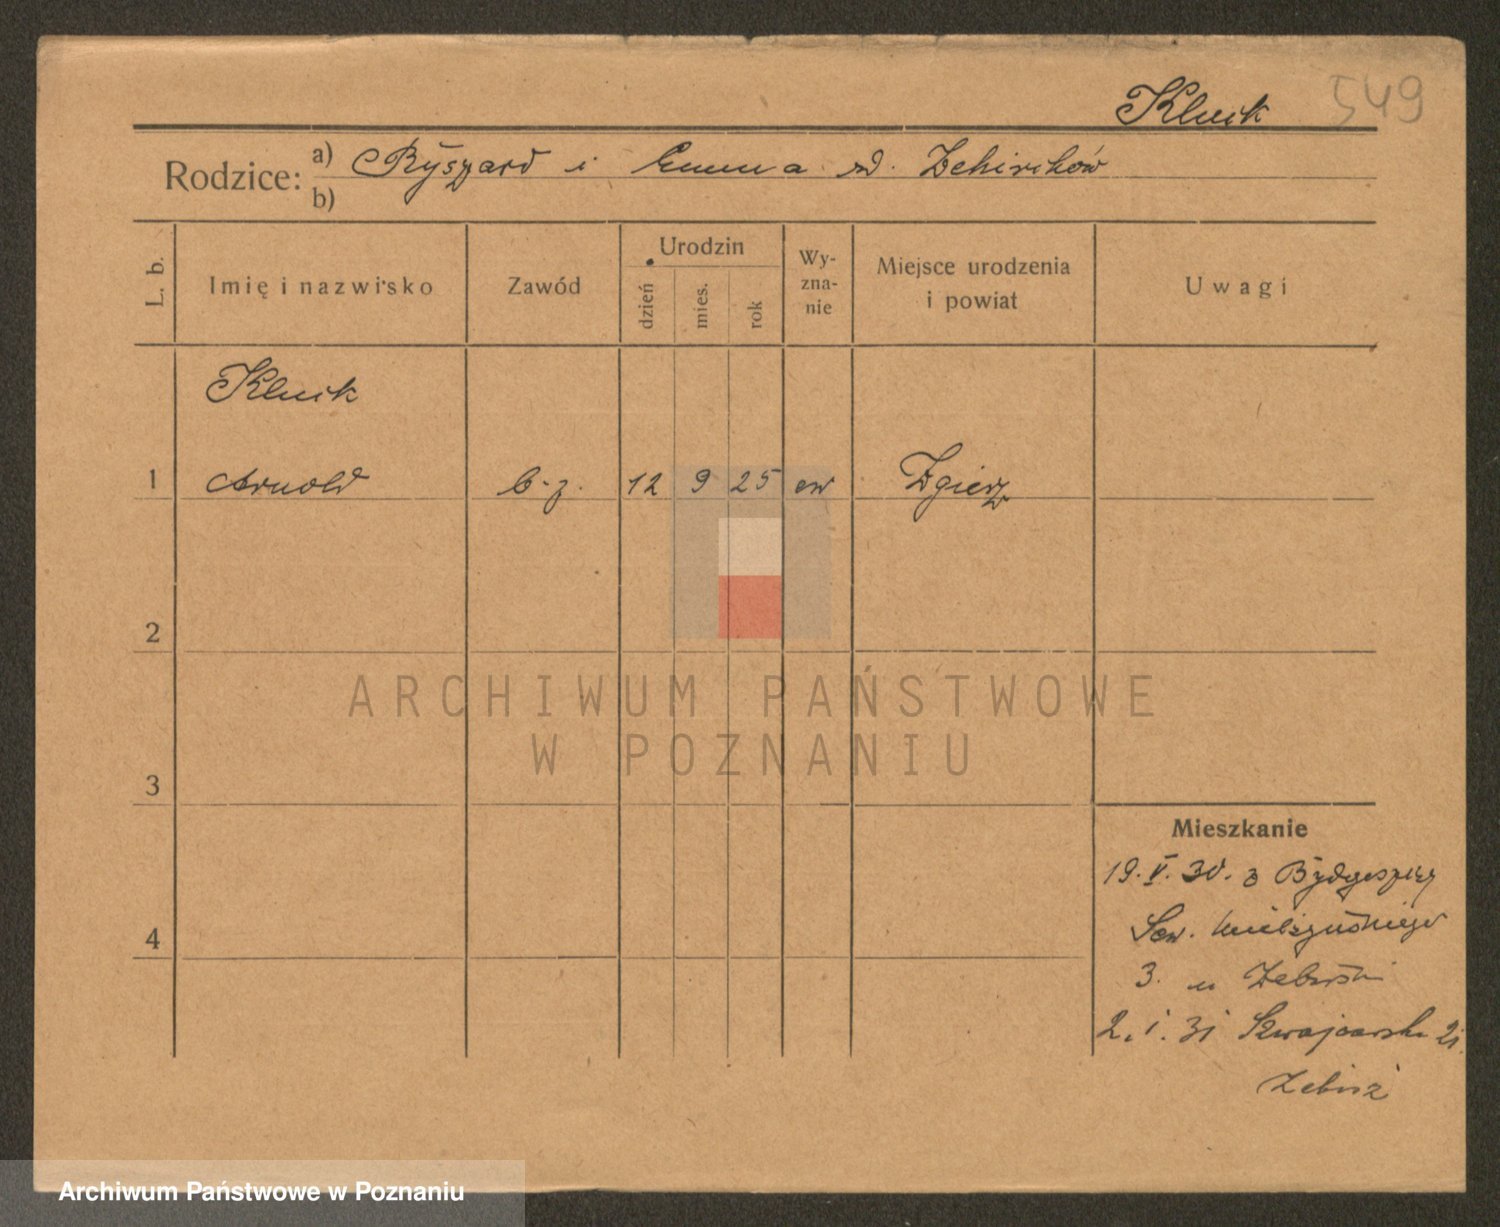 Kluik 549
Rodzice: a) Ryszard i Emma
b)
L. b.
Imię i nazwisko
Zawód
Urodzin
dzień
mies.
rok
Wy-
zna-
nie
Miejsce urodzenia
i powiat
Uwagi
Kluik
1 Arnold b. z. 12 9 25 ew Zgierz
2
3
4
Mieszkanie
19. V. 30. z Bydgoszczy
Sew. Mielżyńskiego
3. u
2. I. 31 Szwajcarska 21.
ARCHIWUM PAŃSTWOWE
W POZNANIU
Archiwum Państwowe w Poznaniu